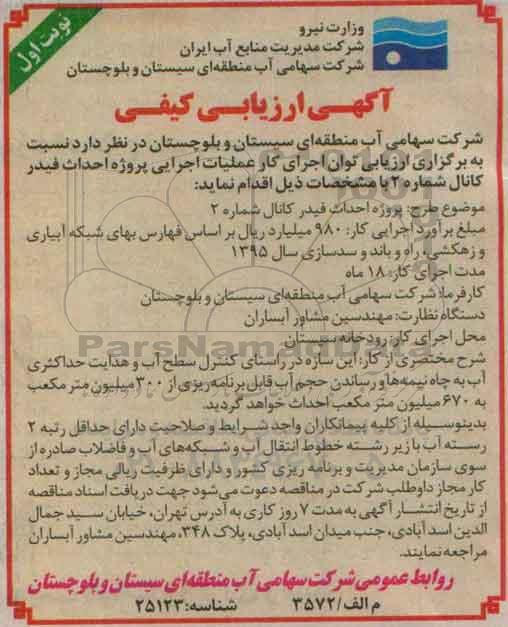 نوبت اول
وزارت نیرو
شرکت مدیریت منابع آب ایران
شرکت سهامی آب منطقه‌ای سیستان و بلوچستان
آگهی ارزیابی کیفی
شرکت سهامی آب منطقه‌ای سیستان و بلوچستان در نظر دارد نسبت
به برگزاری ارزیابی توان اجرای کار عملیات اجرایی پروژه احداث فیدر
کانال شماره ۲ با مشخصات ذیل اقدام نماید:
موضوع طرح: پروژه احداث فیدر کانال شماره ۲
مبلغ برآورد اجرایی کار: ۹۸۰ میلیارد ریال بر اساس فهارس بهای شبکه آبیاری
و زهکشی، راه و باند و سدسازی سال ۱۳۹۵
مدت اجرای کار: ۱۸ ماه
کارفرما: شرکت سهامی آب منطقه‌ای سیستان و بلوچستان
دستگاه نظارت: مهندسین مشاور آبساران
محل اجرای کار: رودخانه سیستان
شرح مختصری از کار: این سازه در راستای کنترل سطح آب و هدایت حداکثری
آب به چاه نیمه‌ها و رساندن حجم آب قابل برنامه‌ریزی از ۳۰۰ میلیون متر مکعب
به ۶۷۰ میلیون متر مکعب احداث خواهد گردید.
بدینوسیله از کلیه پیمانکاران واجد شرایط و صلاحیت دارای حداقل رتبه ۲
رسته آب با زیر رشته خطوط انتقال آب و شبکه‌های آب و فاضلاب صادره از
سوی سازمان مدیریت و برنامه ریزی کشور و دارای ظرفیت ریالی مجاز و تعداد
کار مجاز داوطلب شرکت در مناقصه دعوت می‌شود جهت دریافت اسناد مناقصه
از تاریخ انتشار آگهی به مدت ۷ روز کاری به آدرس تهران، خیابان سید جمال
الدین اسد آبادی، جنب میدان اسد آبادی، پلاک ۳۴۸، مهندسین مشاور آبساران
مراجعه نمایند.
روابط عمومی شرکت سهامی آب منطقه‌ای سیستان و بلوچستان
م الف/۳۵۷۲ شناسه: ۲۵۱۲۳
ParsNamadData